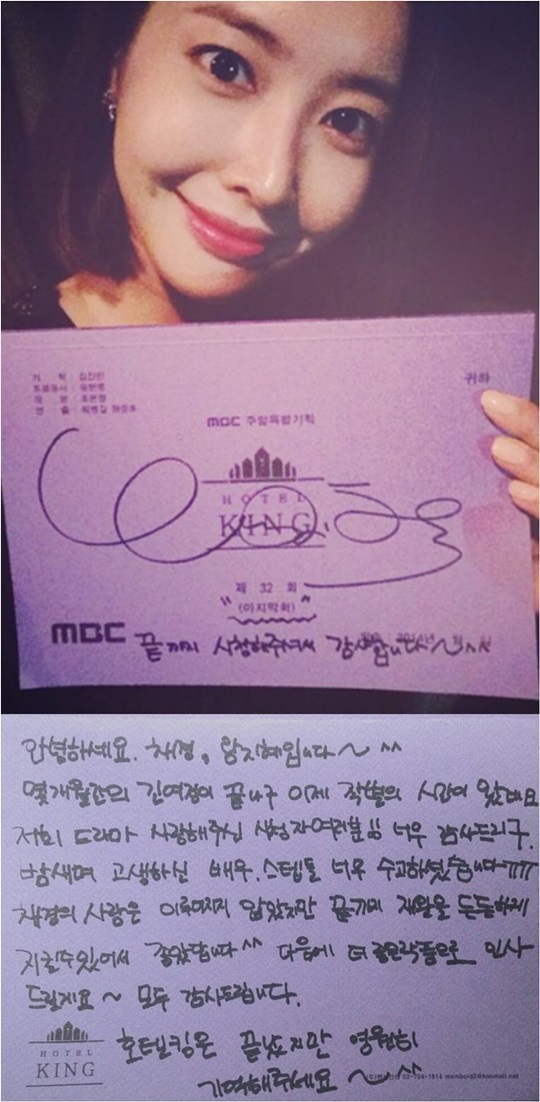 귀하
기 획 : 김진민
극 본 : 조은정
MBC 주말특별기획
HOTEL
KING
제 32 회
"(마지막회)"
MBC 끝까지 시청해주셔서 감사합니다~^^
안녕하세요. 채경, 왕지혜입니다~ ^^
몇개월간의 긴여정이 끝나구 이제 작별의 시간이 왔네요
저희 드라마 사랑해주신 시청자여러분!! 너무 감사드리구.
밤새며 고생하신 배우.스텝들 너무 수고하셨습니다ㅠㅠ
채경의 사랑은 이루어지지 않았지만 끝까지 재완을 든든하게
지킬수있어서 좋았답니다^^ 다음에 더 좋은작품으로 인사
드릴게요~ 모두 감사드립니다.
호텔킹은 끝났지만 영원히
HOTEL
KING
기억해주세요~ ^^
02-704-1814